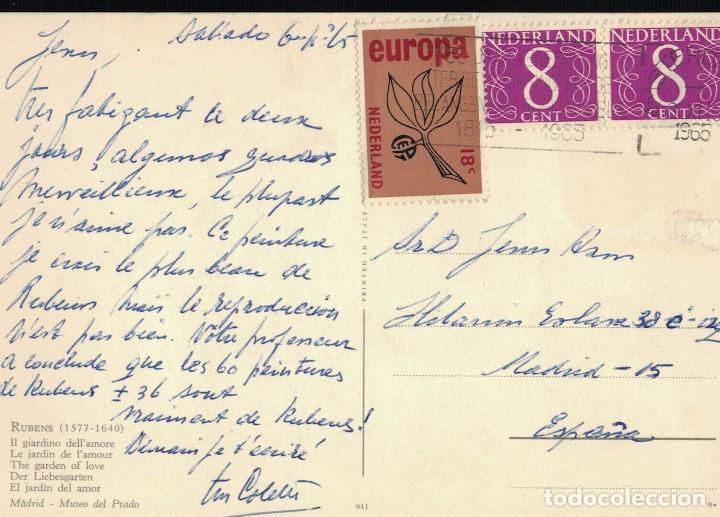 Sabado
Tres fatigant le deux
jours, algunos quadros
merveilleux, le plupart
je n'aime pas. Ce peinture
je crois le plus beau de
Rubens mais le reproducción
n'est pas bien. Votre professeur
a conclude que les 60 peintures
de Rubens ± 36 sont
vraiment de Rubens!
Demain je t'écriré
RUBENS (1577-1640)
Il giardino dell'amore
Le jardin de l'amour
The garden of love
Der Liebesgarten
El jardín del amor
Madrid - Museo del Prado
941
PRINTED IN ITALY
europa
NEDERLAND
CEPT
18c
NEDERLAND
8
CENT
NEDERLAND
8
CENT
1965
1965
Hilarion Eslava 38
Madrid-15
España
todocoleccion
todocoleccion.net